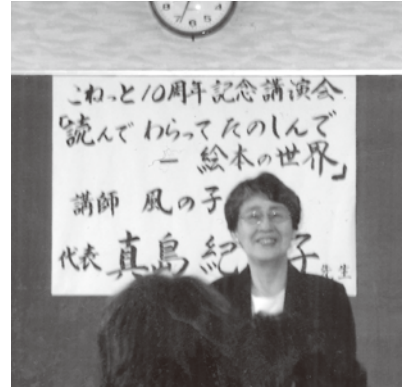 こねっと10周年記念講演会
「読んでわらってたのしんで
－絵本の世界」
講師 風の子
代表 真島紀 子先生